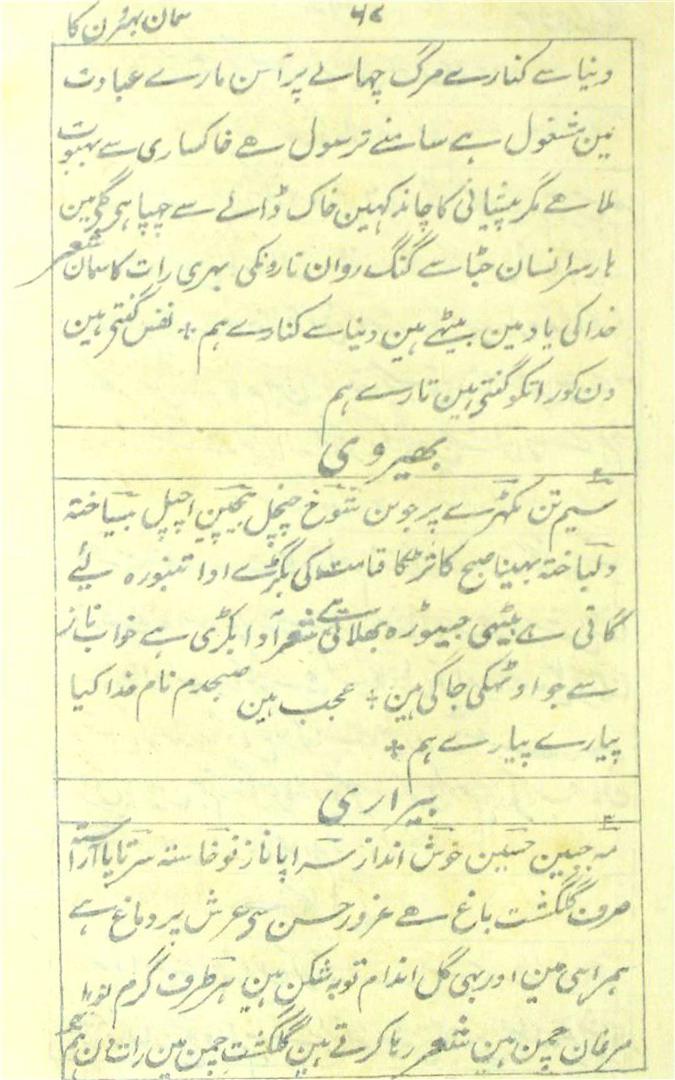 سمان بہترن کا ۶۷
دنیا سے کنارے مرگ چہالے پر آسن مارے عبادت
مین مشغول ہے سامنے ترسول ہے خاکساری سے بہبوت
ملا ہے مگر پیشانی کا چاند کہین خاک ڈالے سے چہپا ہی گلی مین
ہار سر انسان جٹا سے گنگ روان تارونکی بہری رات کا سمان شعر
خدا کی یاد مین بیٹہے ہین دنیا سے کنارے ہم ٭ نفس گنتی ہین
دن کو راتکو گنتی ہین تارے ہم
بھیروی
سیم تن مکہڑے پر جوبن شوخ چنچل اچپل بیساختہ
دلباختہ بہینا صبح کا تڑکا قیامت کی بگڑے ادا تنبورہ لیے
گاتی ہے بیٹہی بھلاتی ہے شعر ادا بگڑی ہے خواب ناز
سے جو اوٹہکی جاگی ہین ٭ عجب ہین صبحدم نام خدا کیا
پیارے پیارے ہم ٭
بیراری
مہ جبین حسین خوش انداز سراپا ناز نوخاستہ سرتاپا آراستہ
صرف گلگشت باغ ہے غرور حسن سی عرش پر دماغ ہے
ہمراہی مین اور بہی گل اندام توبہ شکن ہین ہر طرف گرم
مرغان چمن ہین شعر رہا کرتے ہین گلگشت چمن مین رات دن ہم